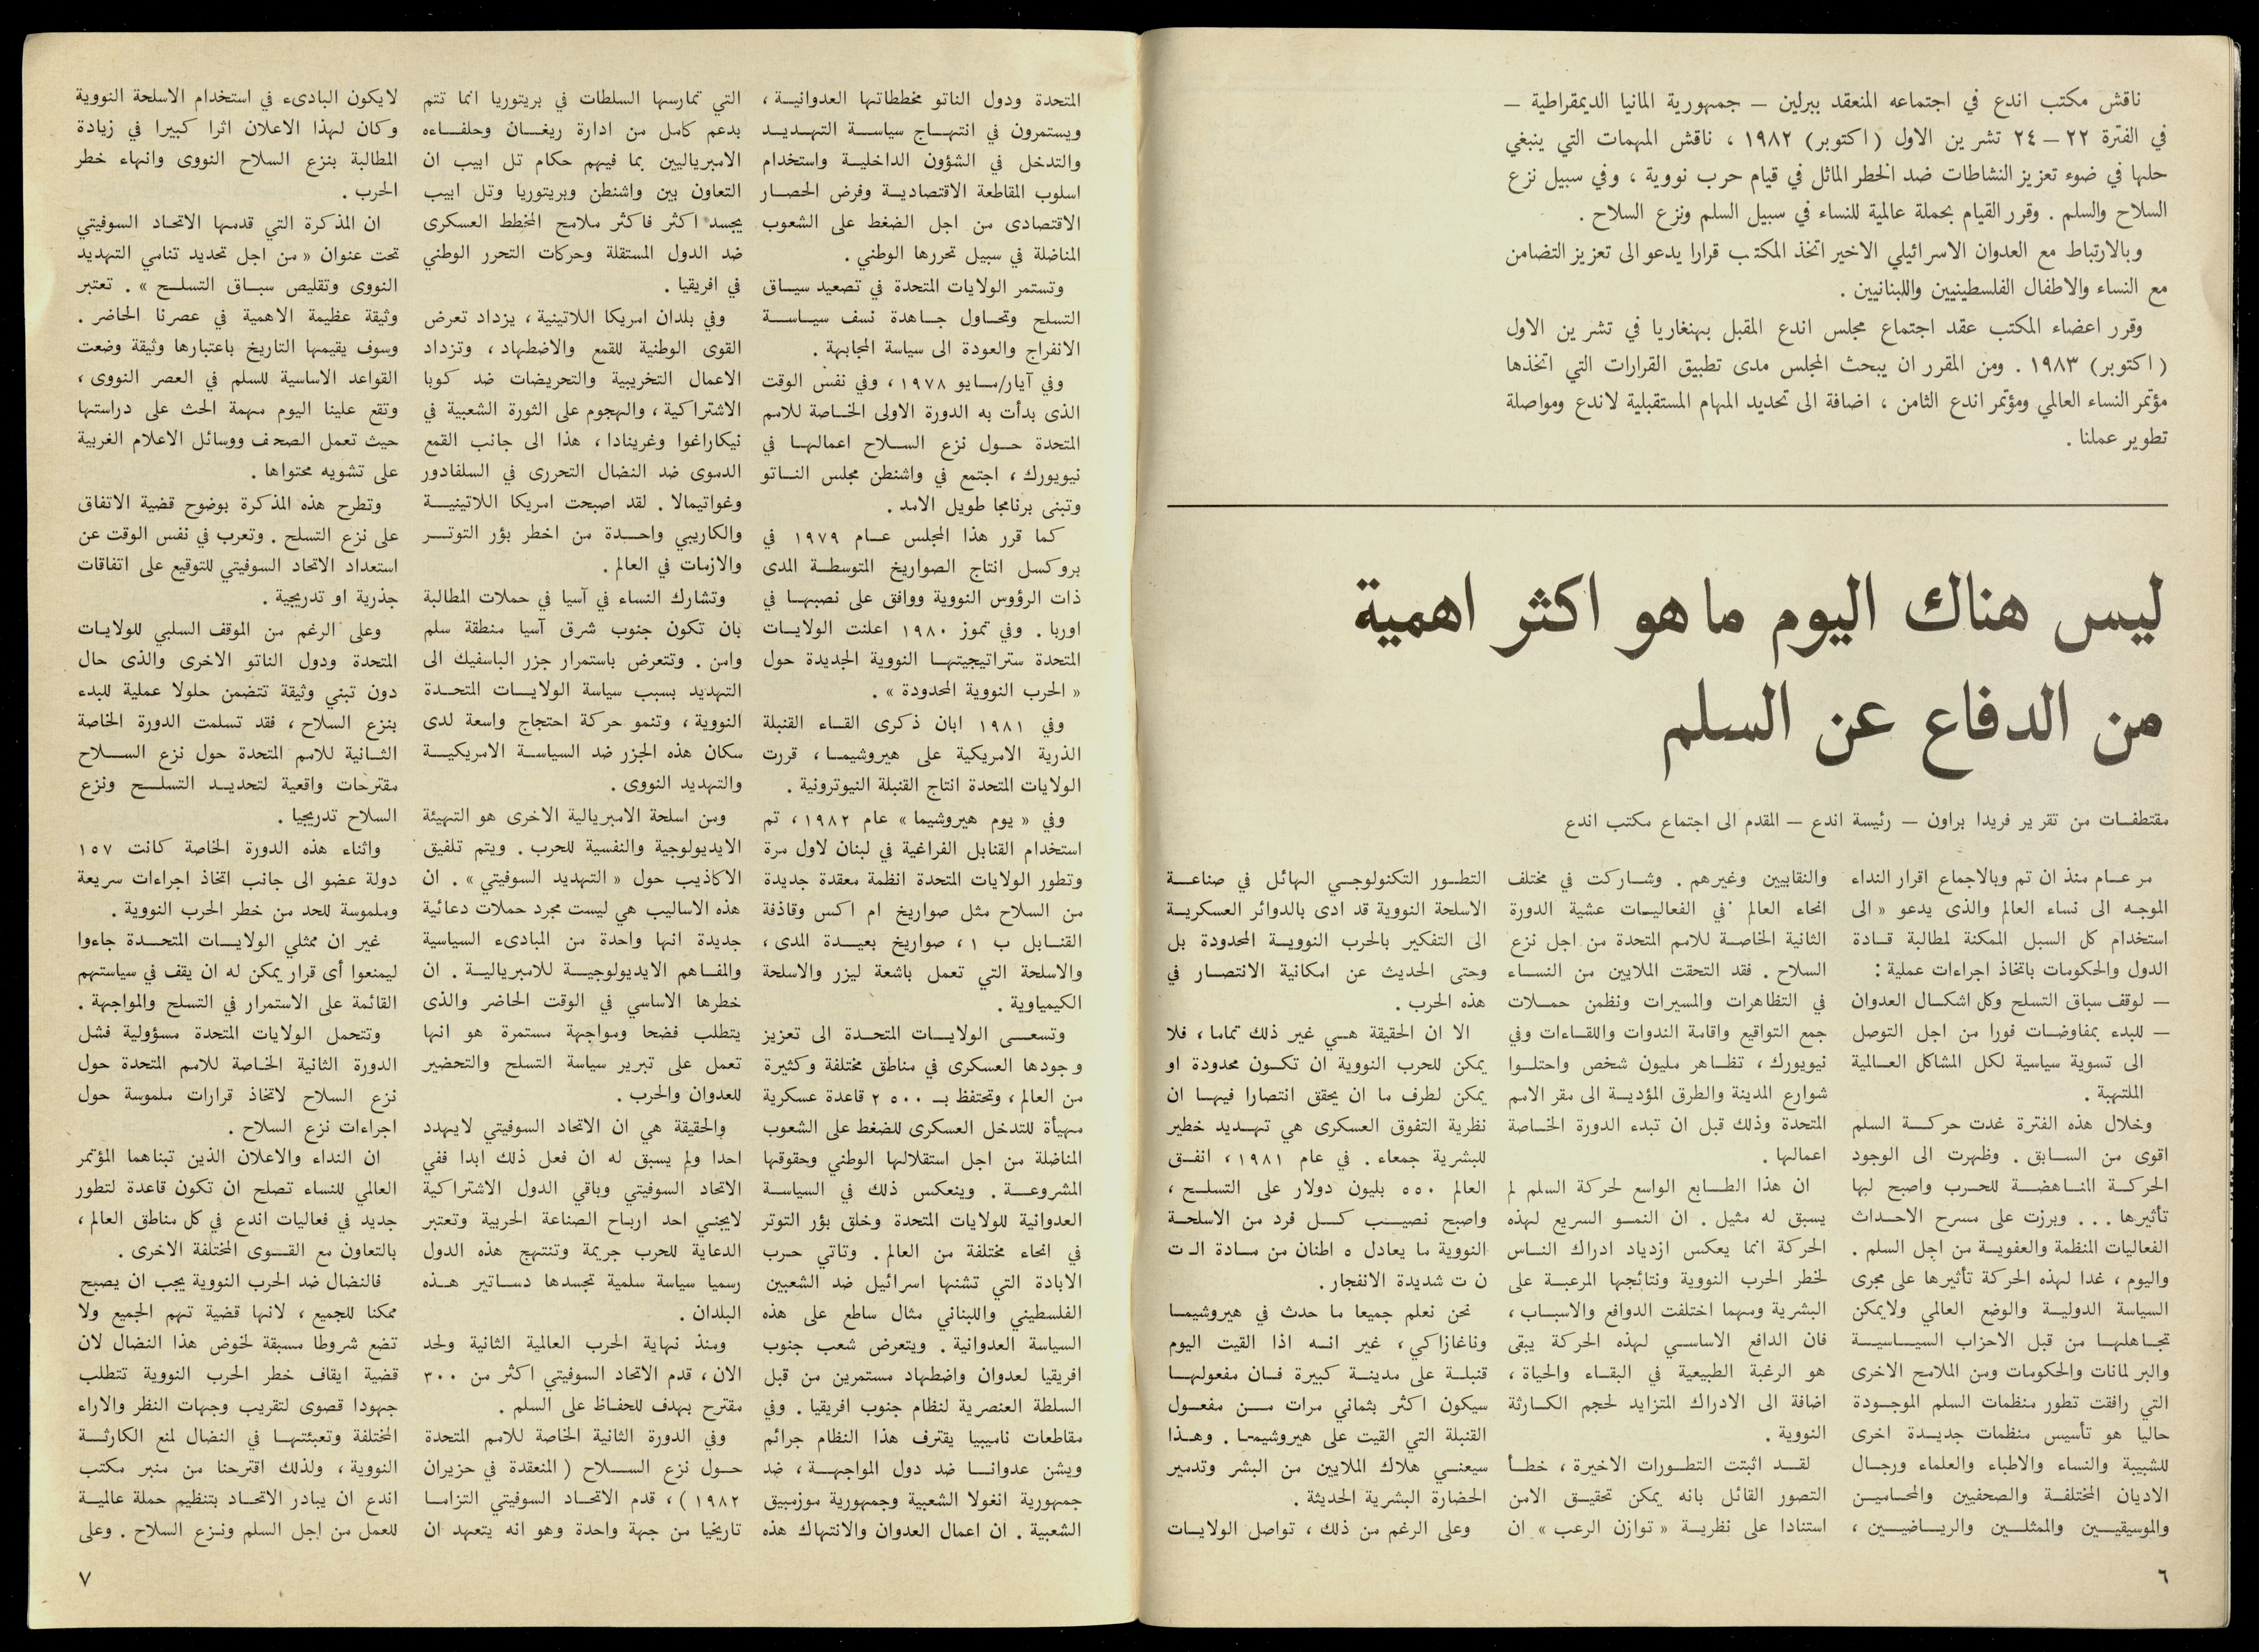 ناقش مكتب اندع في اجتماعه المنعقد ببرلين – جمهورية المانيا الديمقراطية –
في الفترة ٢٢ – ٢٤ تشرين الاول (اكتوبر) ١٩٨٢ ، ناقش المهمات التي ينبغي
حلها في ضوء تعزيز النشاطات ضد الخطر الماثل في قيام حرب نووية ، وفي سبيل نزع
السلاح والسلم . وقرر القيام بحملة عالمية للنساء في سبيل السلم ونزع السلاح .
وبالارتباط مع العدوان الاسرائيلي الاخير اتخذ المكتب قرارا يدعو الى تعزيز التضامن
مع النساء والاطفال الفلسطينيين واللبنانيين .
وقرر اعضاء المكتب عقد اجتماع مجلس اندع المقبل بهنغاريا في تشرين الاول
(اكتوبر) ١٩٨٣ . ومن المقرر ان يبحث المجلس مدى تطبيق القرارات التي اتخذها
مؤتمر النساء العالمي ومؤتمر اندع الثامن ، اضافة الى تحديد المهام المستقبلية لاندع ومواصلة
تطوير عملنا .
ليس هناك اليوم ماهو اكثر اهمية
من الدفاع عن السلم
مقتطفات من تقرير فريدا براون – رئيسة اندع – المقدم الى اجتماع مكتب اندع
مر عام منذ ان تم وبالاجماع اقرار النداء
الموجه الى نساء العالم والذى يدعو « الى
استخدام كل السبل الممكنة لمطالبة قادة
الدول والحكومات باتخاذ اجراءات عملية :
– لوقف سباق التسلح وكل اشكال العدوان
– للبدء بمفاوضات فورا من اجل التوصل
الى تسوية سياسية لكل المشاكل العالمية
الملتهبة .
وخلال هذه الفترة غدت حركة السلم
اقوى من السابق . وظهرت الى الوجود
الحركة المناهضة للحرب واصبح لها
تأثيرها ... وبرزت على مسرح الاحداث
الفعاليات المنظمة والعفوية من اجل السلم .
واليوم ، غدا لهذه الحركة تأثيرها على مجرى
السياسة الدولية والوضع العالمي ولايمكن
تجاهلها من قبل الاحزاب السياسية
والبرلمانات والحكومات ومن الملامح الاخرى
التي رافقت تطور منظمات السلم الموجودة
حاليا هو تأسيس منظمات جديدة اخرى
للشبيبة والنساء والاطباء والعلماء ورجال
الاديان المختلفة والصحفيين والمحامين
والموسيقيين والممثلين والرياضيين ،
والنقابيين وغيرهم . وشاركت في مختلف
انحاء العالم في الفعاليات عشية الدورة
الثانية الخاصة للامم المتحدة من اجل نزع
السلاح . فقد التحقت الملايين من النساء
في التظاهرات والمسيرات ونظمن حملات
جمع التواقيع واقامة الندوات واللقاءات وفي
نيويورك ، تظاهر مليون شخص واحتلوا
شوارع المدينة والطرق المؤدية الى مقر الامم
المتحدة وذلك قبل ان تبدء الدورة الخاصة
اعمالها .
ان هذا الطابع الواسع لحركة السلم لم
يسبق له مثيل . ان النمو السريع لهذه
الحركة انما يعكس ازدياد ادراك الناس
لخطر الحرب النووية ونتائجها المرعبة على
البشرية ومهما اختلفت الدوافع والاسباب ،
فان الدافع الاساسي لهذه الحركة يبقى
هو الرغبة الطبيعية في البقاء والحياة ،
اضافة الى الادراك المتزايد لحجم الكارثة
النووية .
لقد اثبتت التطورات الاخيرة ، خطأ
التصور القائل بانه يمكن تحقيق الامن
استنادا على نظرية « توازن الرعب » ان
التطور التكنولوجي الهائل في صناعة
الاسلحة النووية قد ادى بالدوائر العسكرية
الى التفكير بالحرب النووية المحدودة بل
وحتى الحديث عن امكانية الانتصار في
هذه الحرب .
الا ان الحقيقة هي غير ذلك تماما ، فلا
يمكن للحرب النووية ان تكون محدودة او
يمكن لطرف ما ان يحقق انتصارا فيها ان
نظرية التفوق العسكرى هي تهديد خطير
للبشرية جمعاء . في عام ١٩٨١ ، انفق
العالم ٥٥٠ بليون دولار على التسلح ،
واصبح نصيب كل فرد من الاسلحة
النووية ما يعادل ٥ اطنان من مادة الـ ت
ن ت شديدة الانفجار .
نحن نعلم جميعا ما حدث في هيروشيما
وناغازاكي ، غير انه اذا القيت اليوم
قنبلة على مدينة كبيرة فان مفعولها
سيكون اكثر بثماني مرات من مفعول
القنبلة التي القيت على هيروشيما . وهذا
سيعني هلاك الملايين من البشر وتدمير
الحضارة البشرية الحديثة .
وعلى الرغم من ذلك ، تواصل الولايات
٦
المتحدة ودول الناتو مخططاتها العدوانية ،
ويستمرون في انتهاج سياسة التهديد
والتدخل في الشؤون الداخلية واستخدام
اسلوب المقاطعة الاقتصادية وفرض الحصار
الاقتصادى من اجل الضغط على الشعوب
المناضلة في سبيل تحررها الوطني .
وتستمر الولايات المتحدة في تصعيد سياق
التسلح وتحاول جاهدة نسف سياسة
الانفراج والعودة الى سياسة المجابهة .
وفي آيار/مايو ١٩٧٨ ، وفي نفس الوقت
الذى بدأت به الدورة الاولى الخاصة للامم
المتحدة حول نزع السلاح اعمالها في
نيويورك ، اجتمع في واشنطن مجلس الناتو
وتبنى برنامجا طويل الامد .
كما قرر هذا المجلس عام ١٩٧٩ في
بروكسل انتاج الصواريخ المتوسطة المدى
ذات الرؤوس النووية ووافق على نصبها في
اوربا . وفي تموز ١٩٨٠ اعلنت الولايات
المتحدة ستراتيجيتها النووية الجديدة حول
« الحرب النووية المحدودة » .
وفي ١٩٨١ ابان ذكرى القاء القنبلة
الذرية الامريكية على هيروشيما ، قررت
الولايات المتحدة انتاج القنبلة النيوترونية .
وفي « يوم هيروشيما » عام ١٩٨٢ ، تم
استخدام القنابل الفراغية في لبنان لاول مرة
وتطور الولايات المتحدة انظمة معقدة جديدة
من السلاح مثل صواريخ ام اكس وقاذفة
القنابل ب ١ ، صواريخ بعيدة المدى ،
والاسلحة التي تعمل باشعة ليزر والاسلحة
الكيمياوية .
وتسعى الولايات المتحدة الى تعزيز
وجودها العسكرى في مناطق مختلفة وكثيرة
من العالم ، وتحتفظ بـ ٥٠٠ ٢ قاعدة عسكرية
مهيأة للتدخل العسكرى للضغط على الشعوب
المناضلة من اجل استقلالها الوطني وحقوقها
المشروعة . وينعكس ذلك في السياسة
العدوانية للولايات المتحدة وخلق بؤر التوتر
في انحاء مختلفة من العالم . وتاتي حرب
الابادة التي تشنها اسرائيل ضد الشعبين
الفلسطيني واللبناني مثال ساطع على هذه
السياسة العدوانية . ويتعرض شعب جنوب
افريقيا لعدوان واضطهاد مستمرين من قبل
السلطة العنصرية لنظام جنوب افريقيا . وفي
مقاطعات ناميبيا يقترف هذا النظام جرائم
ويشن عدوانا ضد دول المواجهة ، ضد
جمهورية انغولا الشعبية وجمهورية موزمبيق
الشعبية . ان اعمال العدوان والانتهاك هذه
التي تمارسها السلطات في بريتوريا انما تتم
بدعم كامل من ادارة ريغان وحلفاءه
الامبرياليين بما فيهم حكام تل ابيب ان
التعاون بين واشنطن وبريتوريا وتل ابيب
يجسد اكثر فاكثر ملامح المخطط العسكرى
ضد الدول المستقلة وحركات التحرر الوطني
في افريقيا .
وفي بلدان امريكا اللاتينية ، يزداد تعرض
القوى الوطنية للقمع والاضطهاد ، وتزداد
الاعمال التخريبية والتحريضات ضد كوبا
الاشتراكية ، والهجوم على الثورة الشعبية في
نيكاراغوا وغرينادا ، هذا الى جانب القمع
الدموى ضد النضال التحررى في السلفادور
وغواتيمالا . لقد اصبحت امريكا اللاتينية
والكاريبي واحدة من اخطر بؤر التوتر
والازمات في العالم .
وتشارك النساء في آسيا في حملات المطالبة
بان تكون جنوب شرق آسيا منطقة سلم
وامن . وتتعرض باستمرار جزر الباسفيك الى
التهديد بسبب سياسة الولايات المتحدة
النووية ، وتنمو حركة احتجاج واسعة لدى
سكان هذه الجزر ضد السياسة الامريكية
والتهديد النووى .
ومن اسلحة الامبريالية الاخرى هو التهيئة
الايديولوجية والنفسية للحرب . ويتم تلفيق
الاكاذيب حول « التهديد السوفيتي » . ان
هذه الاساليب هي ليست مجرد حملات دعائية
جديدة انها واحدة من المبادىء السياسية
والمفاهم الايديولوجية للامبريالية . ان
خطرها الاساسي في الوقت الحاضر والذى
يتطلب فضحا ومواجهة مستمرة هو انها
تعمل على تبرير سياسة التسلح والتحضير
للعدوان والحرب .
والحقيقة هي ان الاتحاد السوفيتي لايهدد
احدا ولم يسبق له ان فعل ذلك ابدا ففي
الاتحاد السوفيتي وباقي الدول الاشتراكية
لايجني احد ارباح الصناعة الحربية وتعتبر
الدعاية للحرب جريمة وتنتهج هذه الدول
رسميا سياسة سلمية تجسدها دساتير هذه
البلدان .
ومنذ نهاية الحرب العالمية الثانية ولحد
الان ، قدم الاتحاد السوفيتي اكثر من ٣٠٠
مقترح بهدف للحفاظ على السلم .
وفي الدورة الثانية الخاصة للامم المتحدة
حول نزع السلاح ( المنعقدة في حزيران
١٩٨٢ ) ، قدم الاتحاد السوفيتي التزاما
تاريخيا من جهة واحدة وهو انه يتعهد ان
لايكون البادىء في استخدام الاسلحة النووية
وكان لهذا الاعلان اثرا كبيرا في زيادة
المطالبة بنزع السلاح النووى وانهاء خطر
الحرب .
ان المذكرة التي قدمها الاتحاد السوفيتي
تحت عنوان « من اجل تحديد تنامي التهديد
النووى وتقليص سباق التسلح » . تعتبر
وثيقة عظيمة الاهمية في عصرنا الحاضر .
وسوف يقيمها التاريخ باعتبارها وثيقة وضعت
القواعد الاساسية للسلم في العصر النووى ،
وتقع علينا اليوم مهمة الحث على دراستها
حيث تعمل الصحف ووسائل الاعلام الغربية
على تشويه محتواها .
وتطرح هذه المذكرة بوضوح قضية الاتفاق
على نزع التسلح . وتعرب في نفس الوقت عن
استعداد الاتحاد السوفيتي للتوقيع على اتفاقات
جذرية او تدريجية .
وعلى الرغم من الموقف السلبي للولايات
المتحدة ودول الناتو الاخرى والذى حال
دون تبني وثيقة تتضمن حلولا عملية للبدء
بنزع السلاح ، فقد تسلمت الدورة الخاصة
الثانية للامم المتحدة حول نزع السلاح
مقترحات واقعية لتحديد التسلح ونزع
السلاح تدريجيا .
واثناء هذه الدورة الخاصة كانت ١٥٧
دولة عضو الى جانب اتخاذ اجراءات سريعة
وملموسة للحد من خطر الحرب النووية .
غير ان ممثلي الولايات المتحدة جاءوا
ليمنعوا أى قرار يمكن له ان يقف في سياستهم
القائمة على الاستمرار في التسلح والمواجهة .
وتتحمل الولايات المتحدة مسؤولية فشل
الدورة الثانية الخاصة للامم المتحدة حول
نزع السلاح لاتخاذ قرارات ملموسة حول
اجراءات نزع السلاح .
ان النداء والاعلان الذين تبناهما المؤتمر
العالمي للنساء تصلح ان تكون قاعدة لتطور
جديد في فعاليات اندع في كل مناطق العالم ،
بالتعاون مع القوى المختلفة الاخرى .
فالنضال ضد الحرب النووية يجب ان يصبح
ممكنا للجميع ، لانها قضية تهم الجميع ولا
تضع شروطا مسبقة لخوض هذا النضال لان
قضية ايقاف خطر الحرب النووية تتطلب
جهودا قصوى لتقريب وجهات النظر والاراء
المختلفة وتعبئتها في النضال لمنع الكارثة
النووية ، ولذلك اقترحنا من منبر مكتب
اندع ان يبادر الاتحاد بتنظيم حملة عالمية
للعمل من اجل السلم ونزع السلاح . وعلى
٧